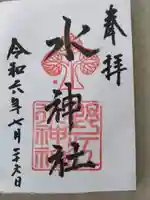 奉拝
水神社
令和六年七月二十六日